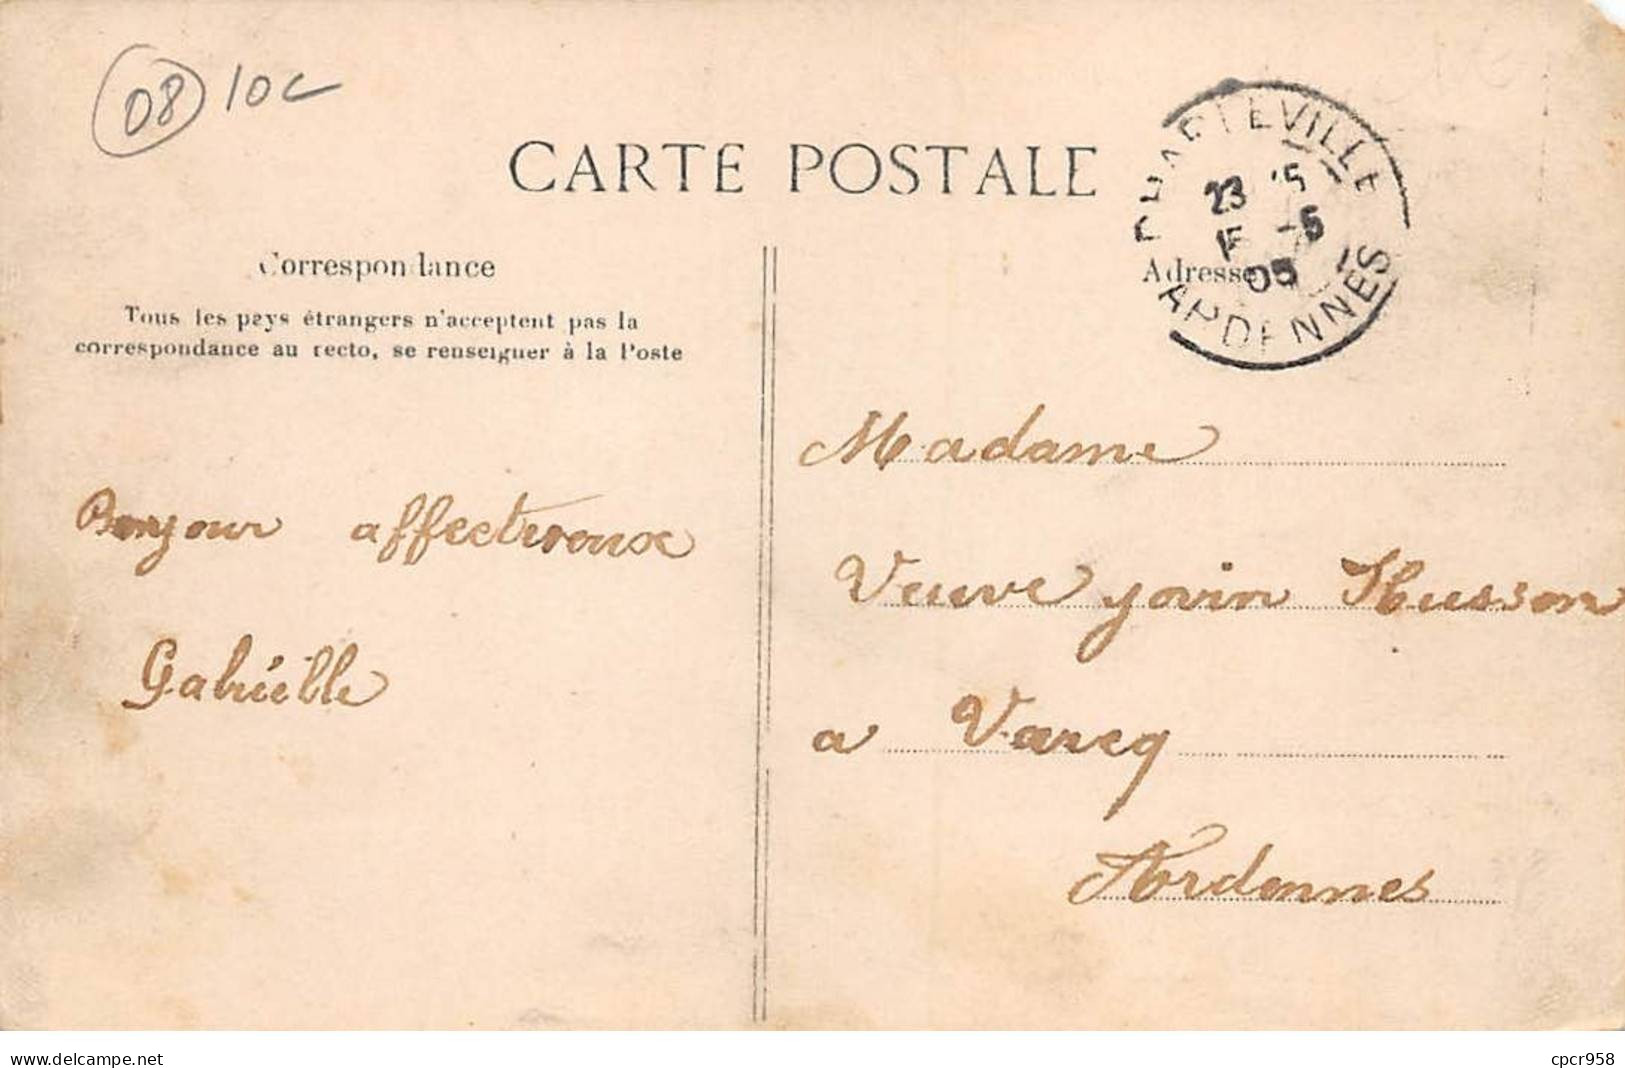 08 10c
CARTE POSTALE
CHARLEVILLE
23 15
15 -5
05
ARDENNES
Correspondance
Adresse
Tous les pays étrangers n'acceptent pas la
correspondance au recto, se renseigner à la Poste
Madame
Bonjour affectueux
Veuve Jovin Husson
Gabrielle
a Varcq
Ardennes
www.delcampe.net
cpcr958